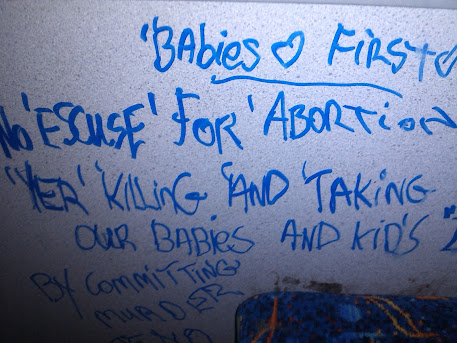 'BAbies ♡ FiRSt
No 'ESCUSE' FOR 'ABORTiON
'YER' 'KiLLiNG 'AND 'TAKiNG
OUR BABiES AND KiD'S
BY COMMiTTiNG
MURDER